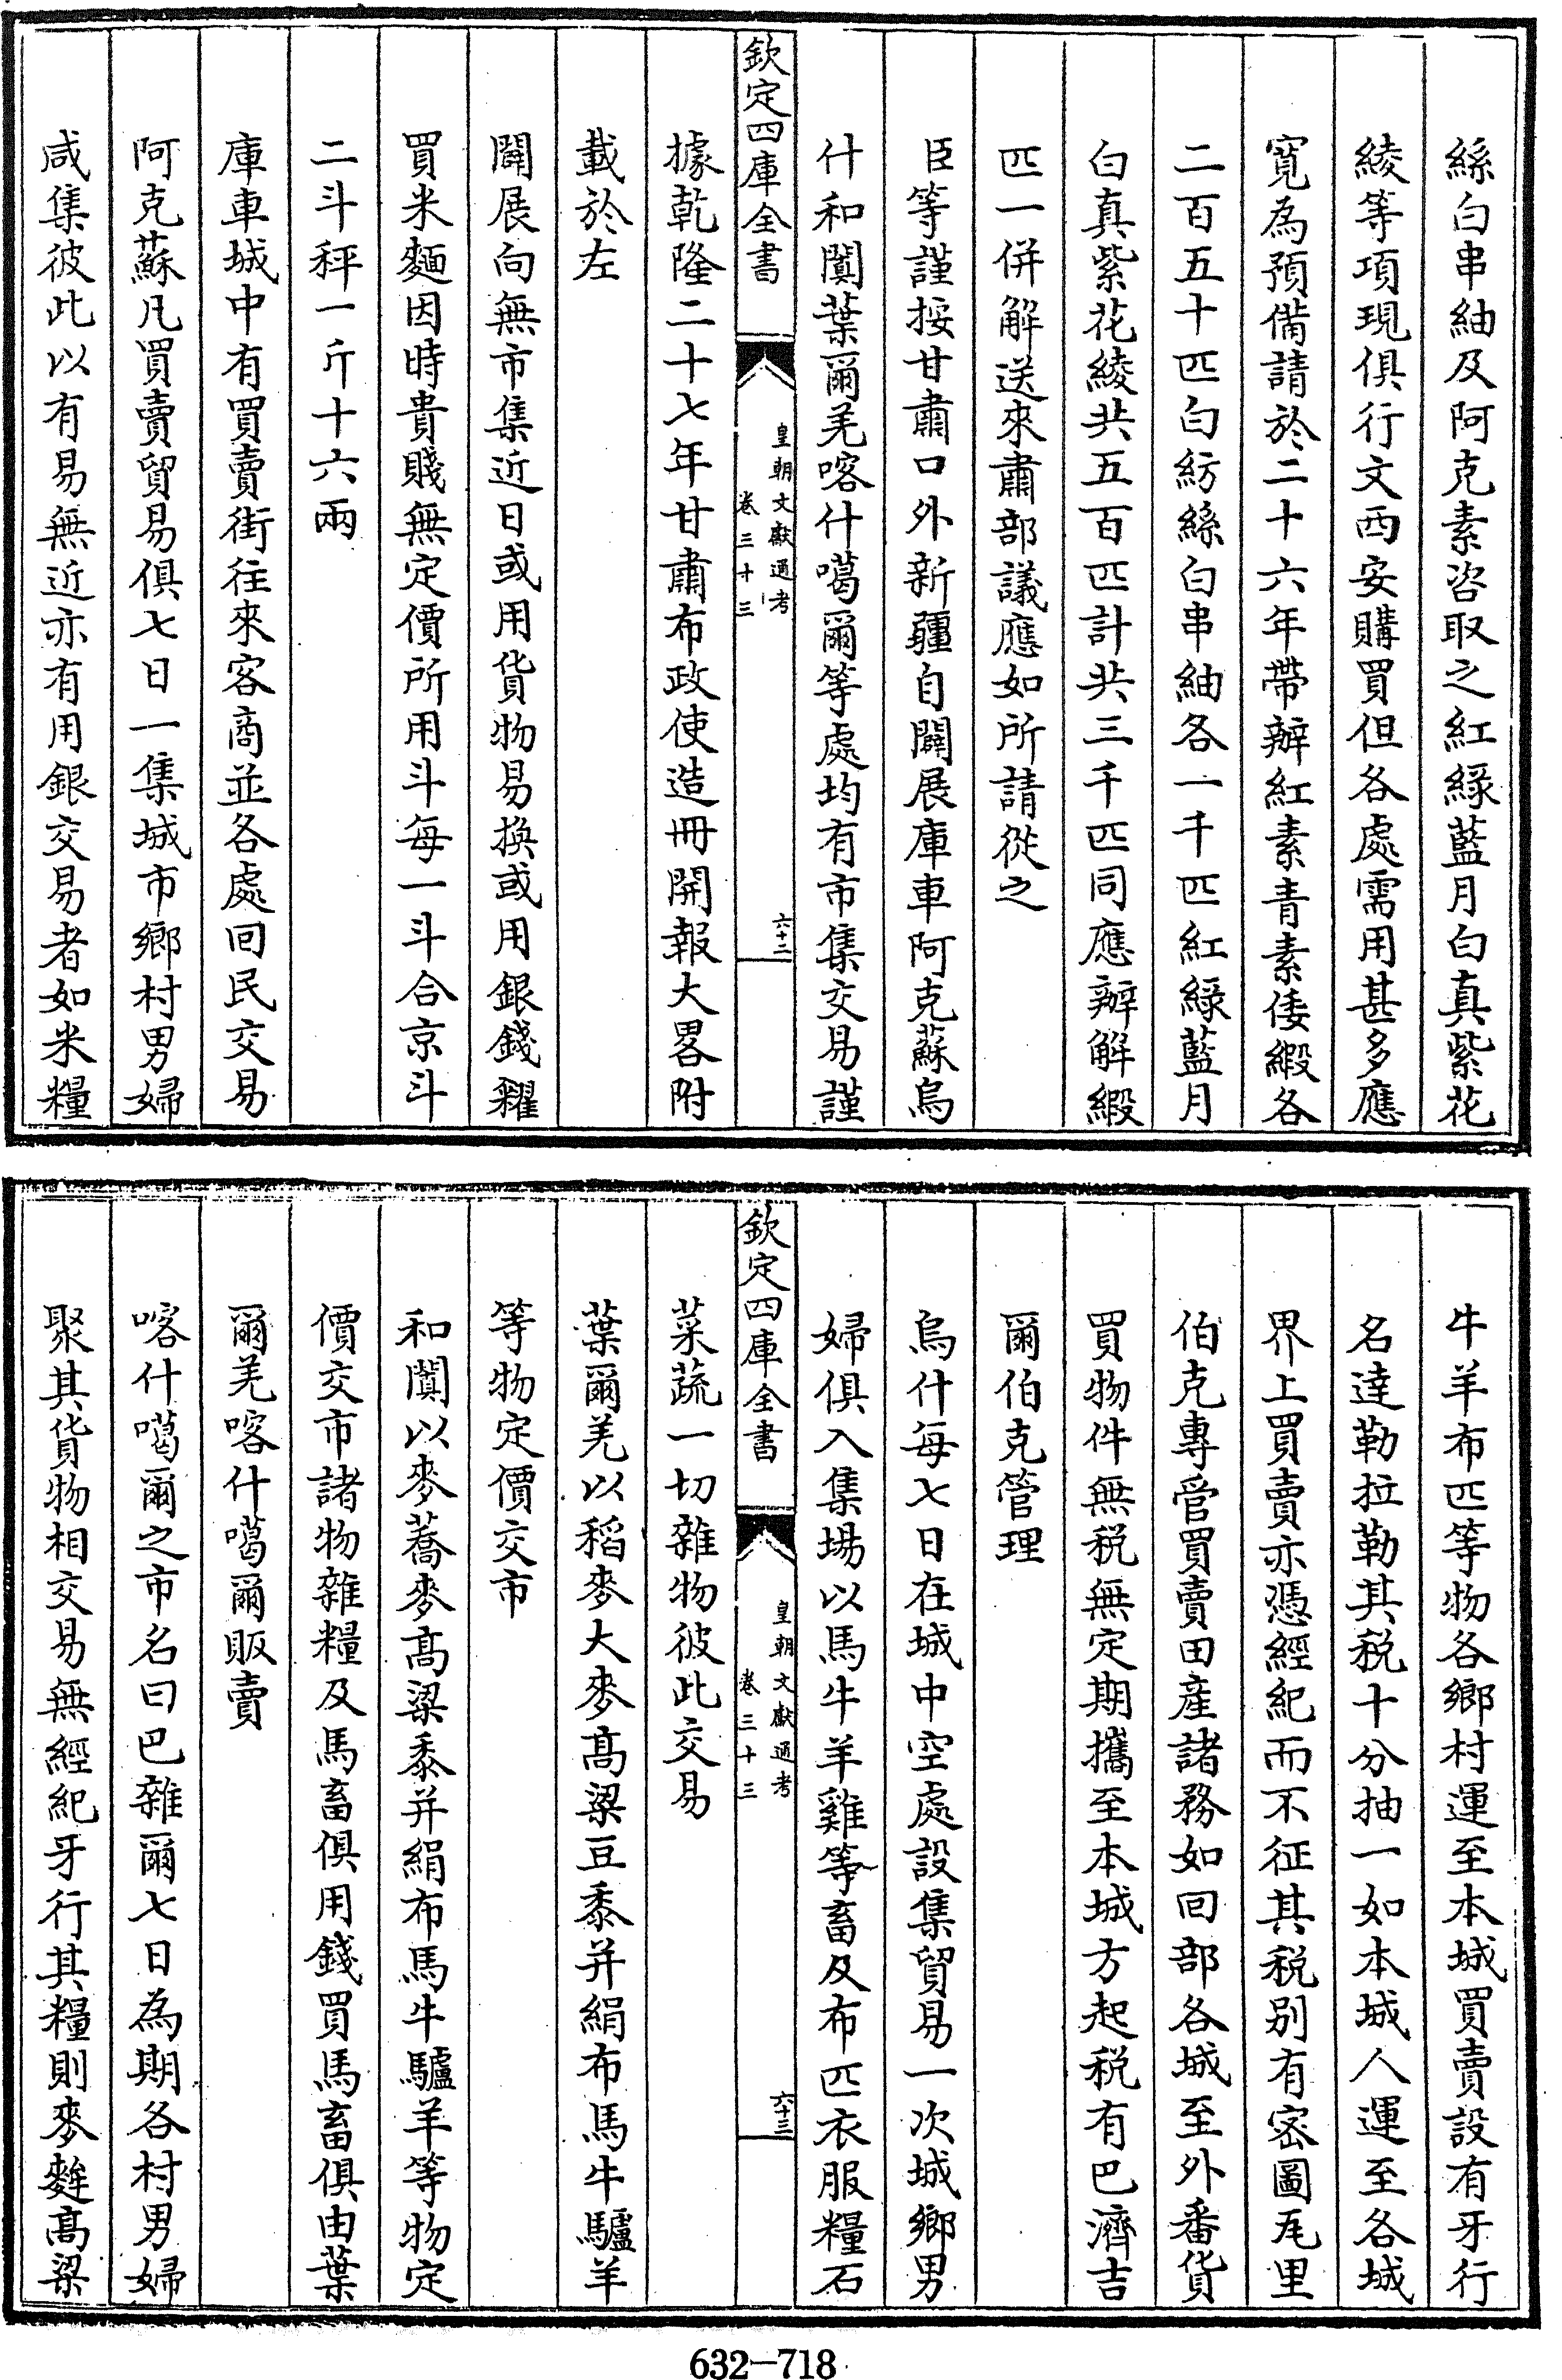 絲白串紬及阿克素咨取之紅緑藍月白真紫花
綾等項現俱行文西安購買但各處需用甚多應
寛為預備請於二十六年帶辦紅素青素倭緞各
二百五十匹白紡絲白串紬各一千匹紅緑藍月
白真紫花綾共五百匹計共三千匹同應辦解緞
匹一併解送來肅部議應如所請從之
臣等謹按甘肅口外新疆自闢展庫車阿克蘇烏
什和闐葉爾羌喀什噶爾等處均有市集交易謹
欽定四庫全書
皇朝文獻通考
卷三十三
六十二
據乾隆二十七年甘肅布政使造冊開報大畧附
載於左
闢展向無市集近日或用貨物易換或用銀錢糴
買米麵因時貴賤無定價所用斗每一斗合京斗
二斗秤一斤十六兩
庫車城中有買賣街往來客商並各處回民交易
阿克蘇凡買賣貿易俱七日一集城市鄉村男婦
咸集彼此以有易無近亦有用銀交易者如米糧
牛羊布匹等物各鄉村運至本城買賣設有牙行
名達勒拉勒其税十分抽一如本城人運至各城
界上買賣亦憑經紀而不征其税别有密圖瓦里
伯克專管買賣田産諸務如回部各城至外番貨
買物件無税無定期攜至本城方起税有巴濟吉
爾伯克管理
烏什每七日在城中空處設集貿易一次城鄉男
婦俱入集場以馬牛羊雞等畜及布匹衣服糧石
欽定四庫全書
皇朝文獻通考
卷三十三
六十三
菜蔬一切雜物彼此交易
葉爾羌以稻麥大麥髙粱豆黍并絹布馬牛驢羊
等物定價交市
和闐以麥蕎麥髙粱黍并絹布馬牛驢羊等物定
價交市諸物雜糧及馬畜俱用錢買馬畜俱由葉
爾羌喀什噶爾販賣
喀什噶爾之市名曰巴雜爾七日為期各村男婦
聚其貨物相交易無經紀牙行其糧則麥麰髙粱
632—718